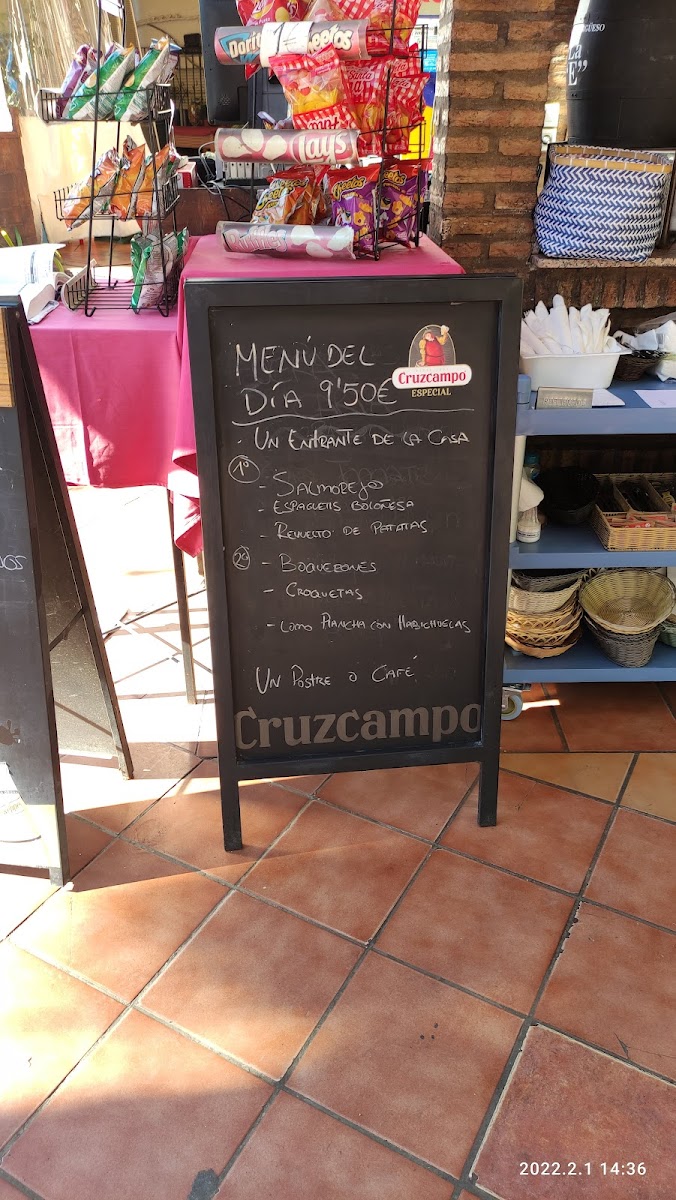 Doritos
Cheetos
Lays
Cheetos
Cheetos
MENÚ DEL
DÍA 9'50€
Cruzcampo
ESPECIAL
- UN ENTRANTE DE LA CASA
1º
- SALMOREJO
- ESPAGUETIS BOLOÑESA
- REVUELTO DE PATATAS
2º
- BOQUERONES
- CROQUETAS
- LOMO PLANCHA CON HABICHUELAS
UN POSTRE O CAFÉ
Cruzcampo
2022.2.1 14:36